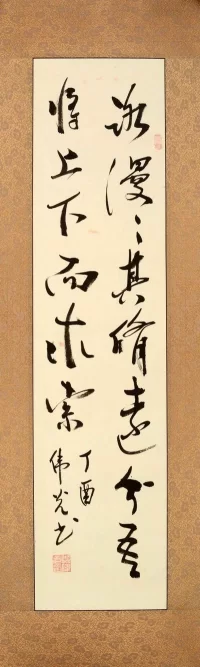 路漫漫其脩遠兮吾
將上下而求索
丁酉
偉光书